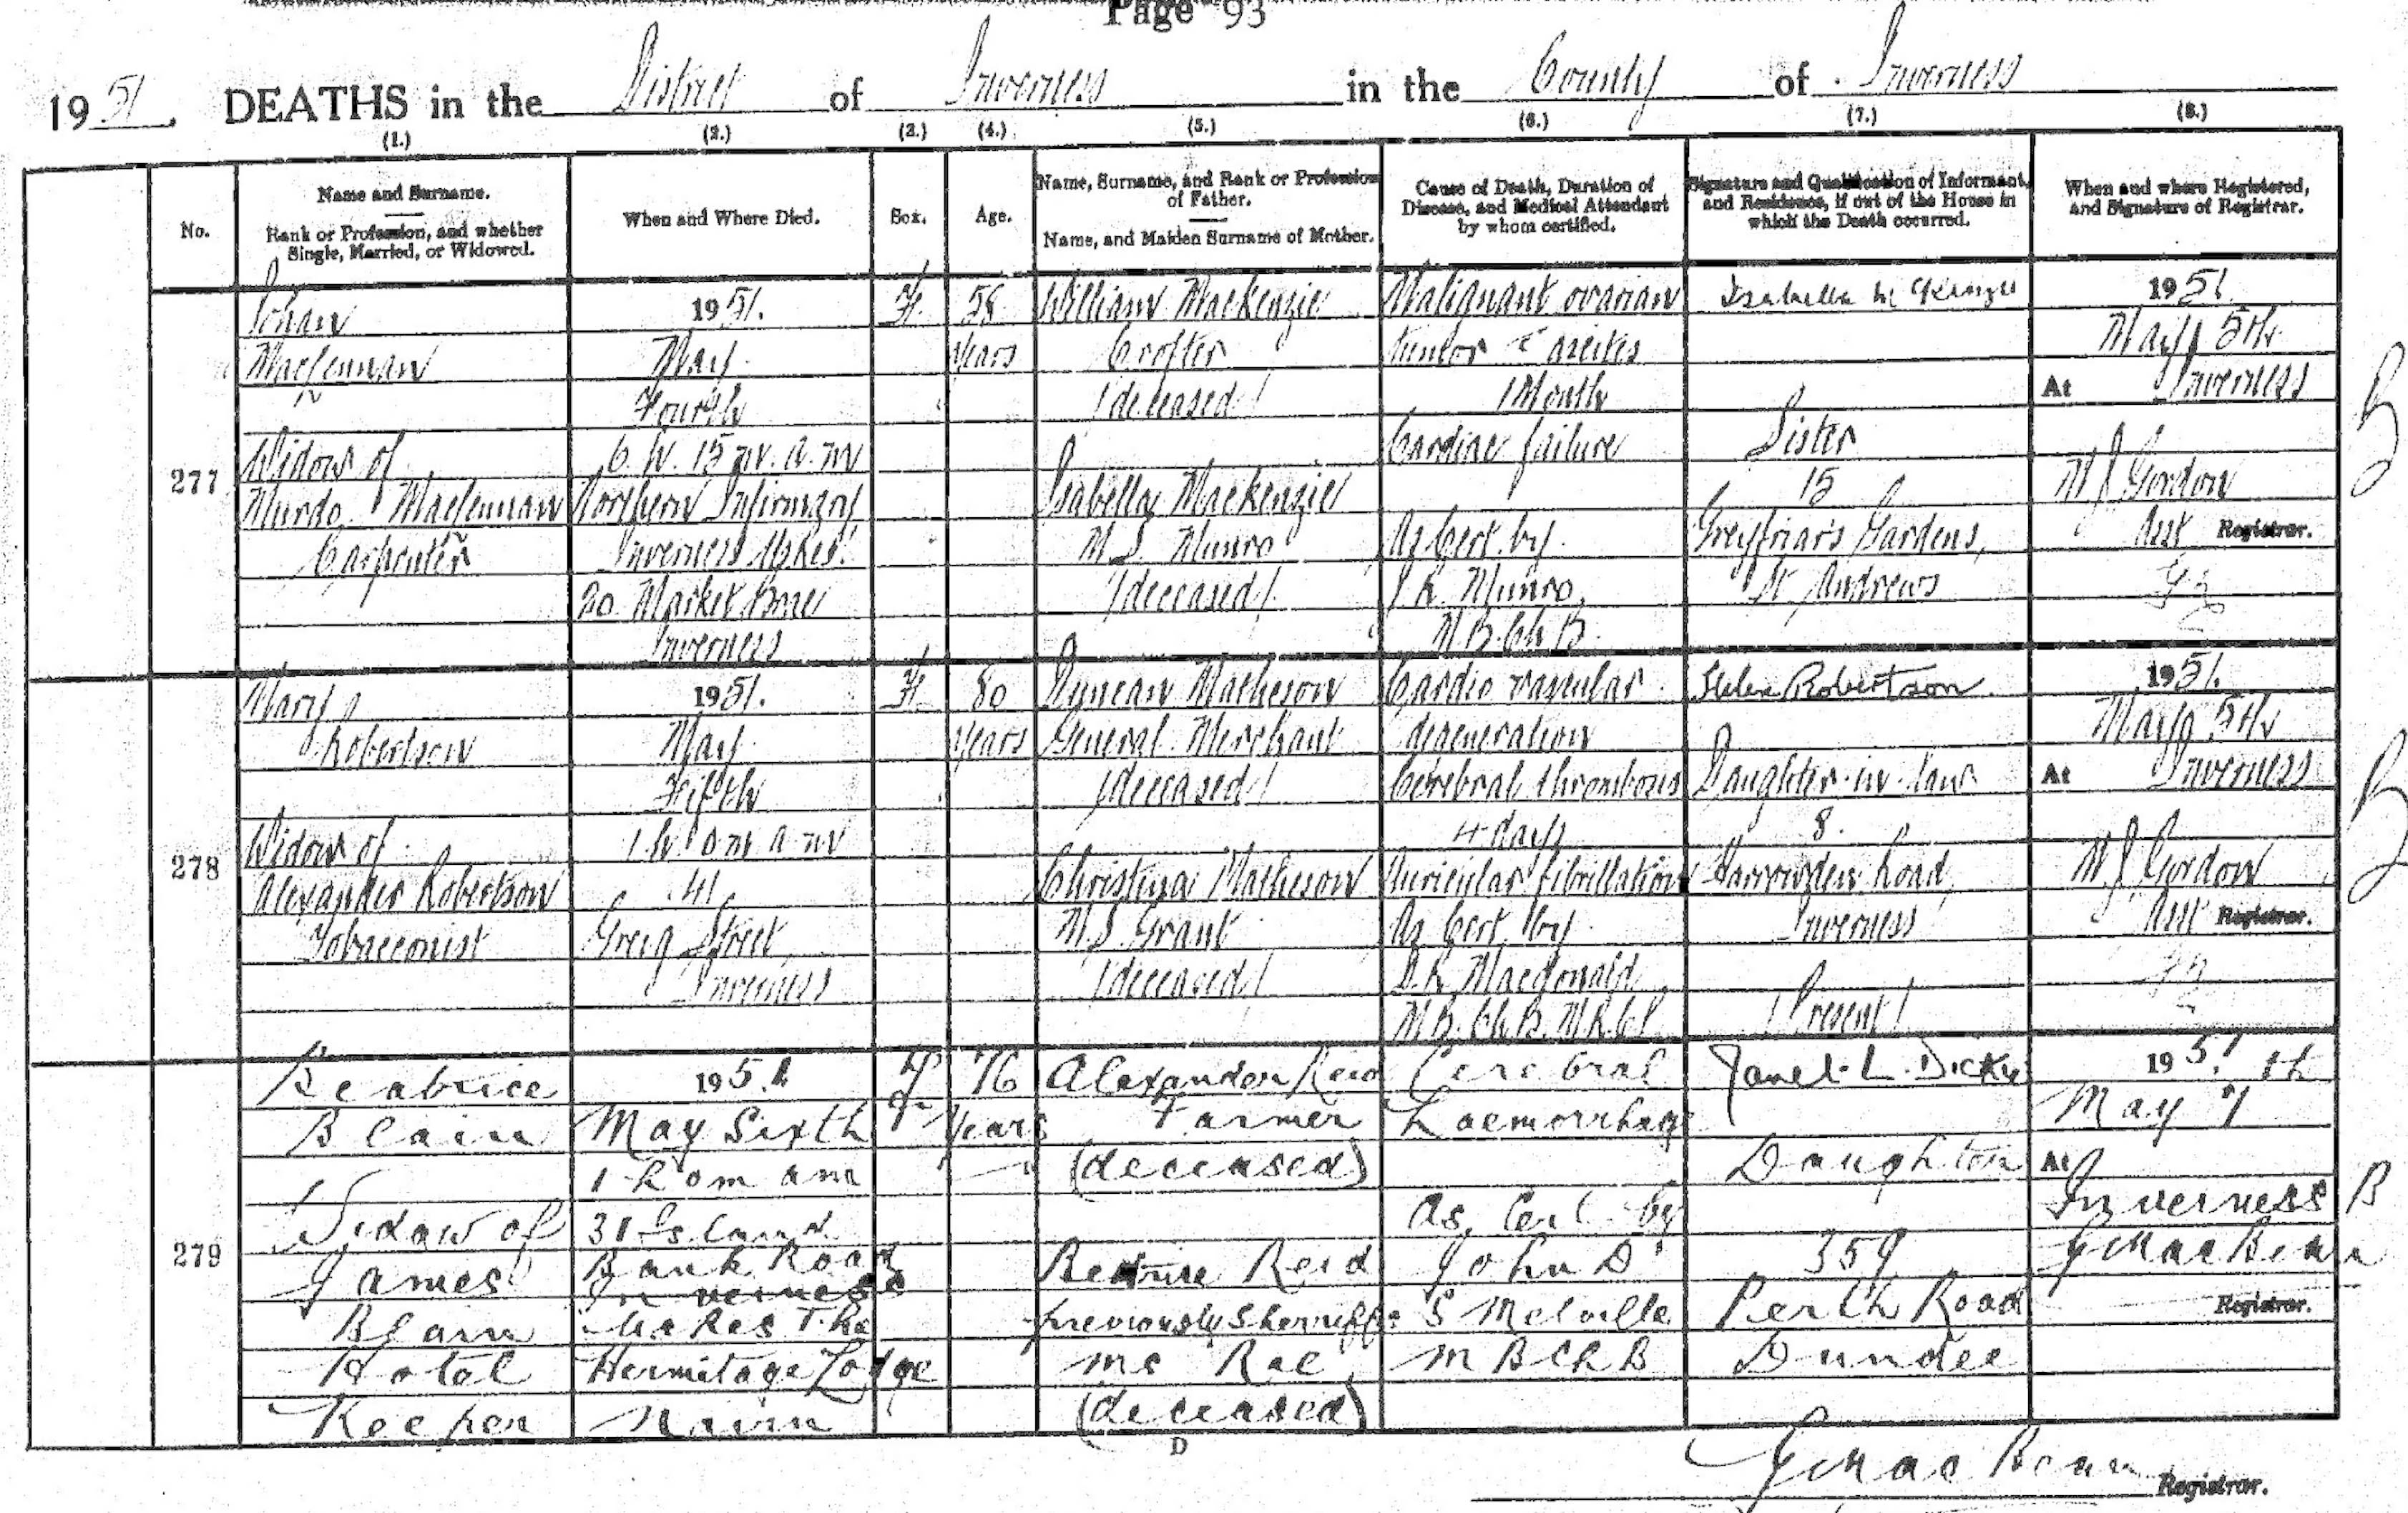 Page 93
1951. DEATHS in the District of Inverness in the County of Inverness
(1.) (2.) (3.) (4.) (5.) (6.) (7.) (8.)
No.
Name and Surname.
Rank or Profession, and whether
Single, Married, or Widowed.
When and Where Died.
Sex.
Age.
Name, Surname, and Rank or Profession
of Father.
Name, and Maiden Surname of Mother.
Cause of Death, Duration of
Disease, and Medical Attendant
by whom certified.
Signature and Qualification of Informant,
and Residence, if out of the House in
which the Death occurred.
When and where Registered,
and Signature of Registrar.
277
Johan
MacLennan
Widow of
Murdo MacLennan
Carpenter
1951.
May
Fourth
6 h. 15 m. a.m
Northern Infirmary
Inverness Us Res:
20 Market Brae
Inverness
F.
58
Years
William Mackenzie
Crofter
(deceased)
Isabella Mackenzie
M.S. Munro
(deceased)
Malignant ovarian
tumor c ascites
1 Month
Cardiac failure
As Cert by
Munro,
M.B. Ch B.
Isabella McKenzie
Sister
15
Greyfriars Gardens,
St Andrews
1951
May 5th
At Inverness
Gordon
Asst Registrar.
B
278
Mary
Robertson
Widow of
Alexander Robertson
Tobacconist
1951.
May
Fifth
1 h 0 m a.m
41
Greig Street
Inverness
F.
80
Years
Duncan Matheson
General Merchant
(deceased)
Christina Matheson
M.S. Grant
(deceased)
Cardio vascular
degeneration
Cerebral thrombosis
4 days
Auricular fibrillation
As Cert by
Macdonald
M.B. Ch B.
Helen Robertson.
Daughter-in-law
8.
Harrowden Road,
Inverness
(Present)
1951.
May 5th
At Inverness
Gordon
Asst Registrar.
B
279
Beatrice
Blain
Widow of
James
Blain
Hotel
Keeper
1951
May Sixth
1 h 0 m am
31 Island
Bank Road
Inverness
Us Res The
Hermitage Lodge
Nairn
F
76
Years
Alexander Reid
Farmer
(deceased)
Reid
previously Sherriffs
MS Rae
(deceased)
Cerebral
haemorrhage
As Cert by
John D
S Melville
M B Ch B
Janet L. Dickie
Daughter
359
Perth Road
Dundee
1951
May 7th
At
Inverness
B
MacBean
Registrar.
D
MacBean
Registrar.